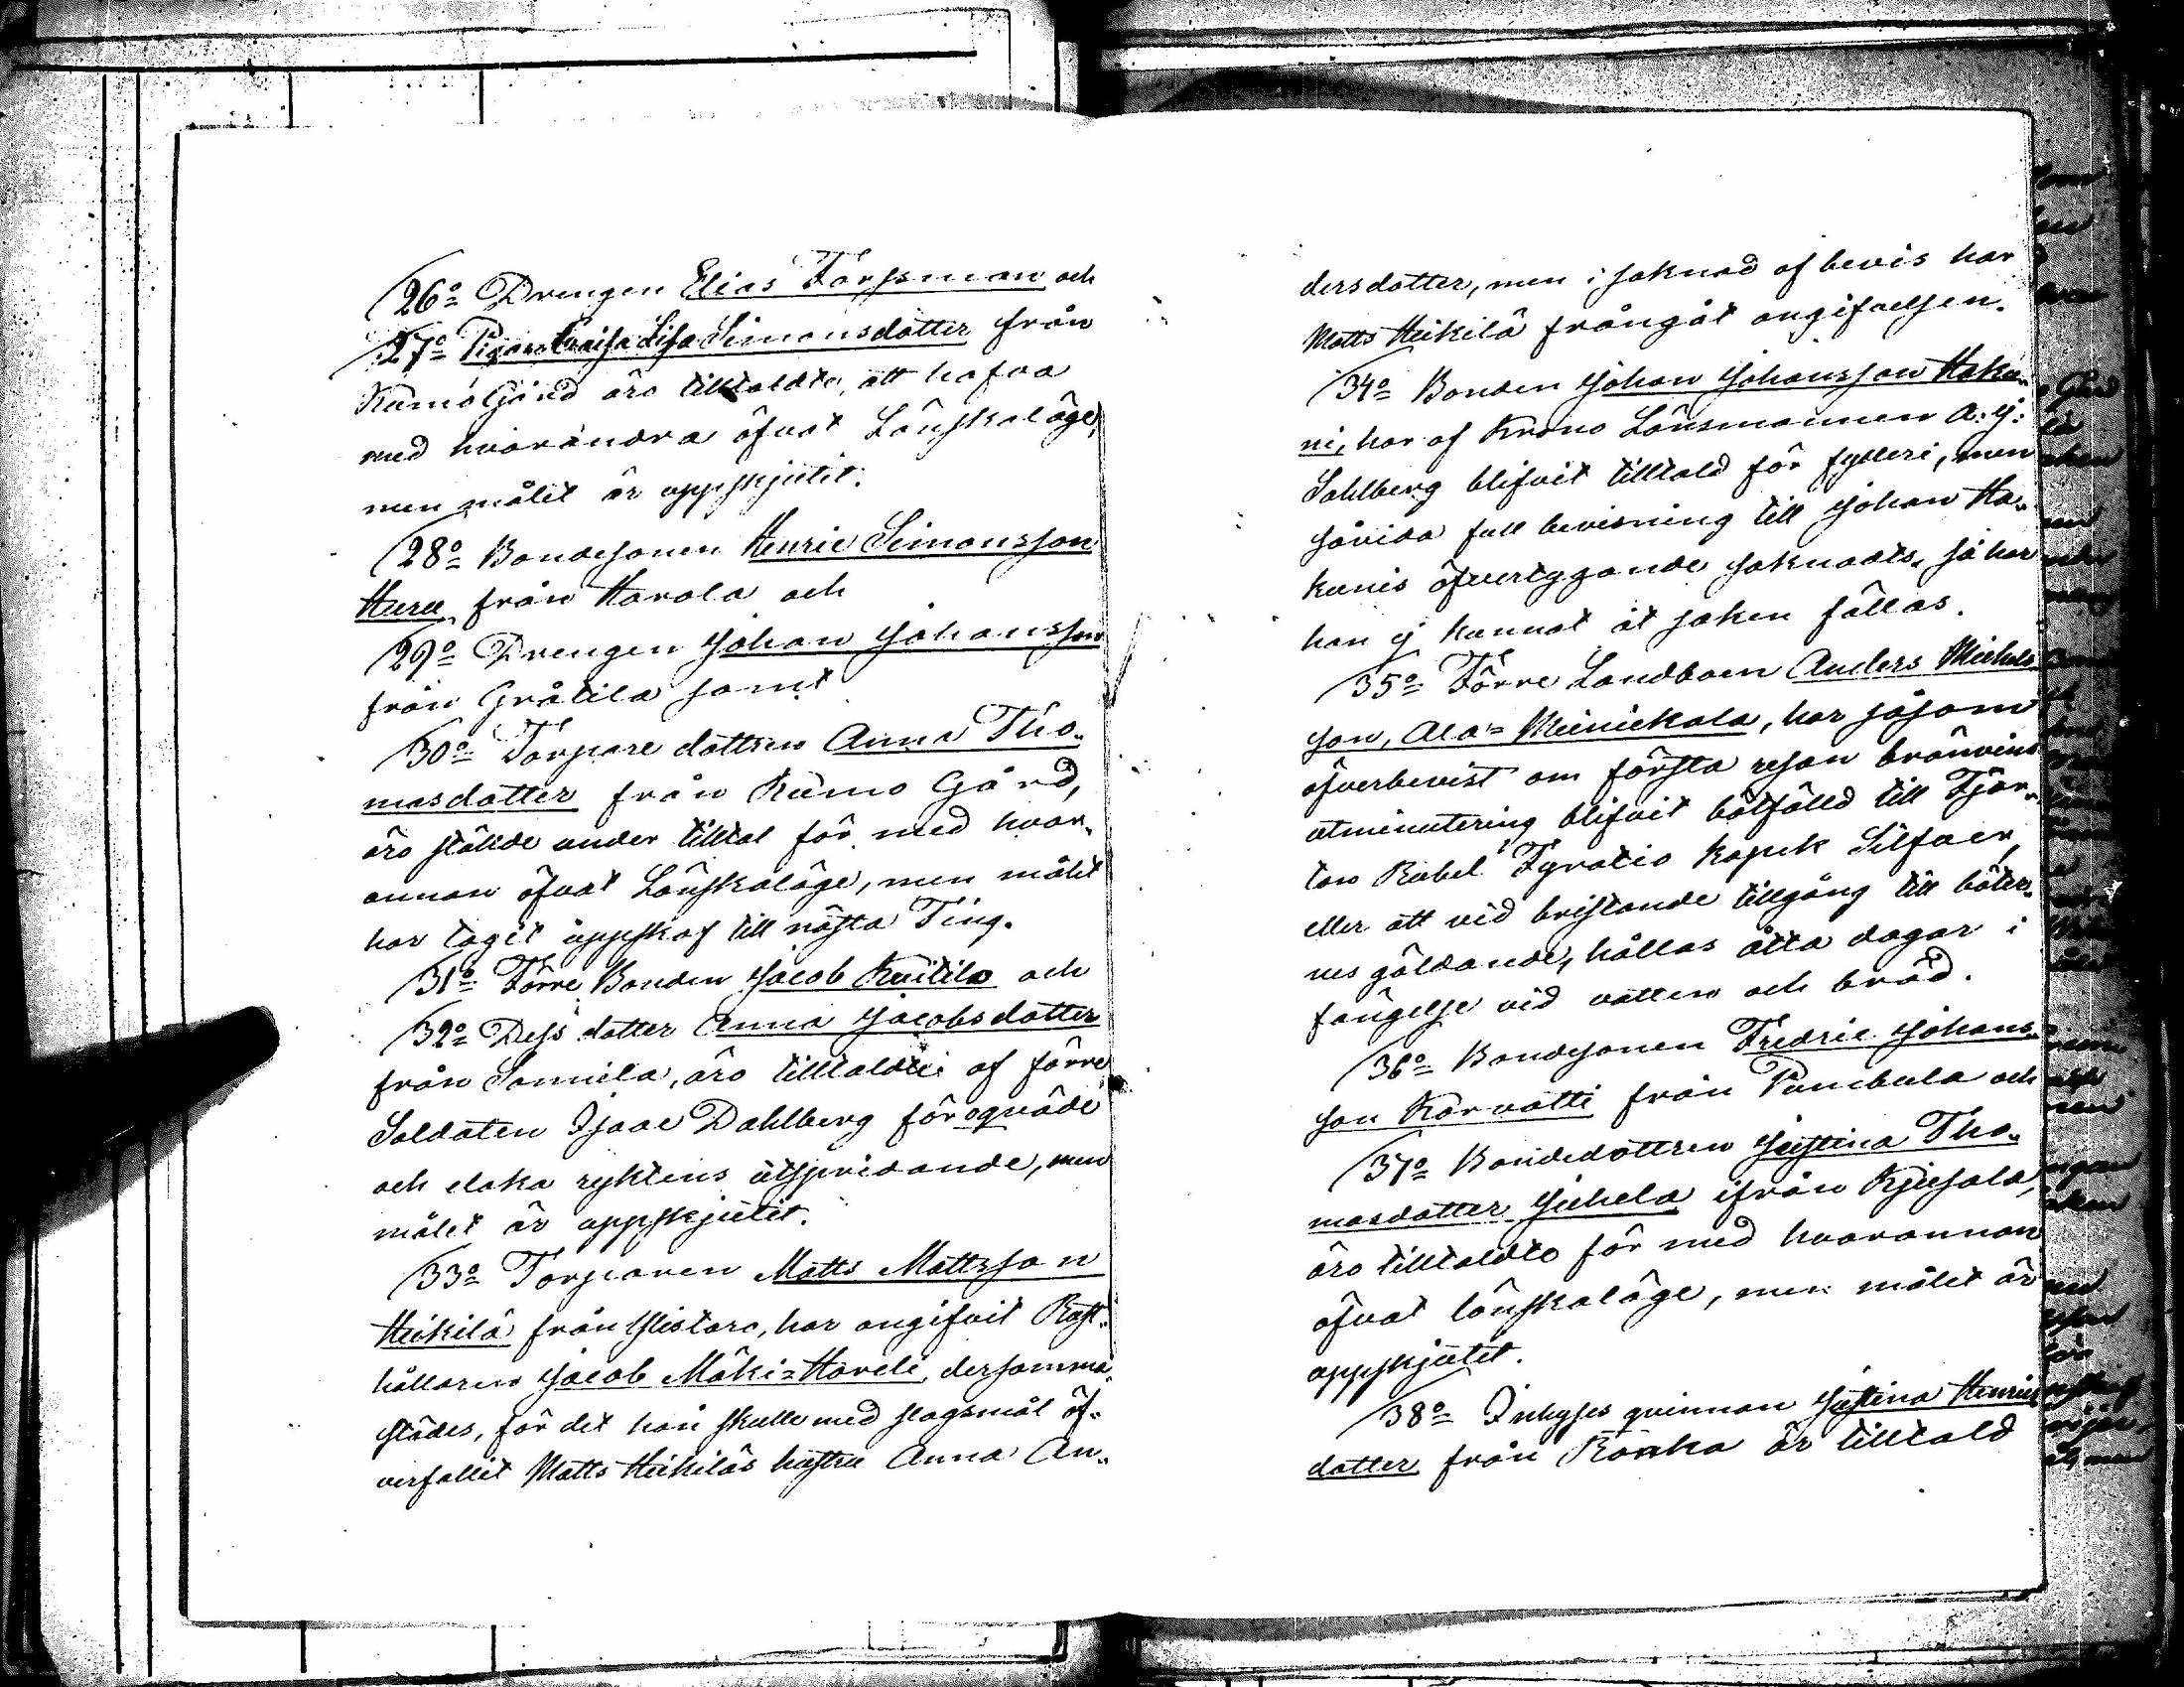 26o Drengen Elias Forssman och
27o Pigan Caisa Lisa Simonsdotter från
Kumo Gård äro tilltaldte, att hafva
med hvarandra öfvat Lönskaläge,
men målet är uppskjutit.
28o Bondesonen Henric Simonsson
Huru från Harola och
29o Drengen Johan Johansson
från Gråtila samt
30o Torpare dottren Anna Tho-
masdotter från Kumo Gård,
äro stälde under tilltal för med hvar-
annan öfvat Lönskaläge, men målet
har tagit uppskof till nästa Ting.
31o Förre Bonden Jacob Kuitila och
32o Dess dotter Anna Jacobsdotter
från Sonnila, äro tilltaldte af förre
Soldaten Isaac Dahlberg för oqväde
och elaka ryktens utspridande, men
målet är uppskjutit.
33o Torparen Matts Mattsson
Heikilä från Ylistaro, har angifvit Rust-
hållaren Jacob Mäki-Haveli, dersamma-
städes, för det han skulle med slagsmål öf-
verfallit Matts Heikiläs hustru Anna An-
dersdotter, men i saknad af bevis har
Matts Heikilä frångåt angifvelsen.
34o Bonden Johan Johansson Haku-
ni, har af Krono Länsmannen A: J:
Sahlberg blifvit tilltald för fylleri, men
såvida full bevisning till Johan Ha-
kunis öfvertygande saknadts, så har
han ej kunnat åt saken fällas.
35o Förre Landboen Anders Michels-
son, Ala-Meinickala, har såsom
öfverbevist om första resan bränvins
utminutering blifvit bötfälld till Fjor-
ton Rubel Fyratio kopek Silfver,
eller att vid bristande tillgång till böter-
nes gäldande, hållas åtta dagar i
fängelse vid vatten och bröd.
36o Bondesonen Fredric Johans-
son Kärvatti från Pumbula och
37o Bondedottren Justina Tho-
masdotter Juhela ifrån Kjusala,
äro tilltaldte för med hvarannan
öfvat lönskaläge, men målet är
uppskjutet.
38o Inhyses qvinnan Justina Henrics
dotter från Ronka är tilltald